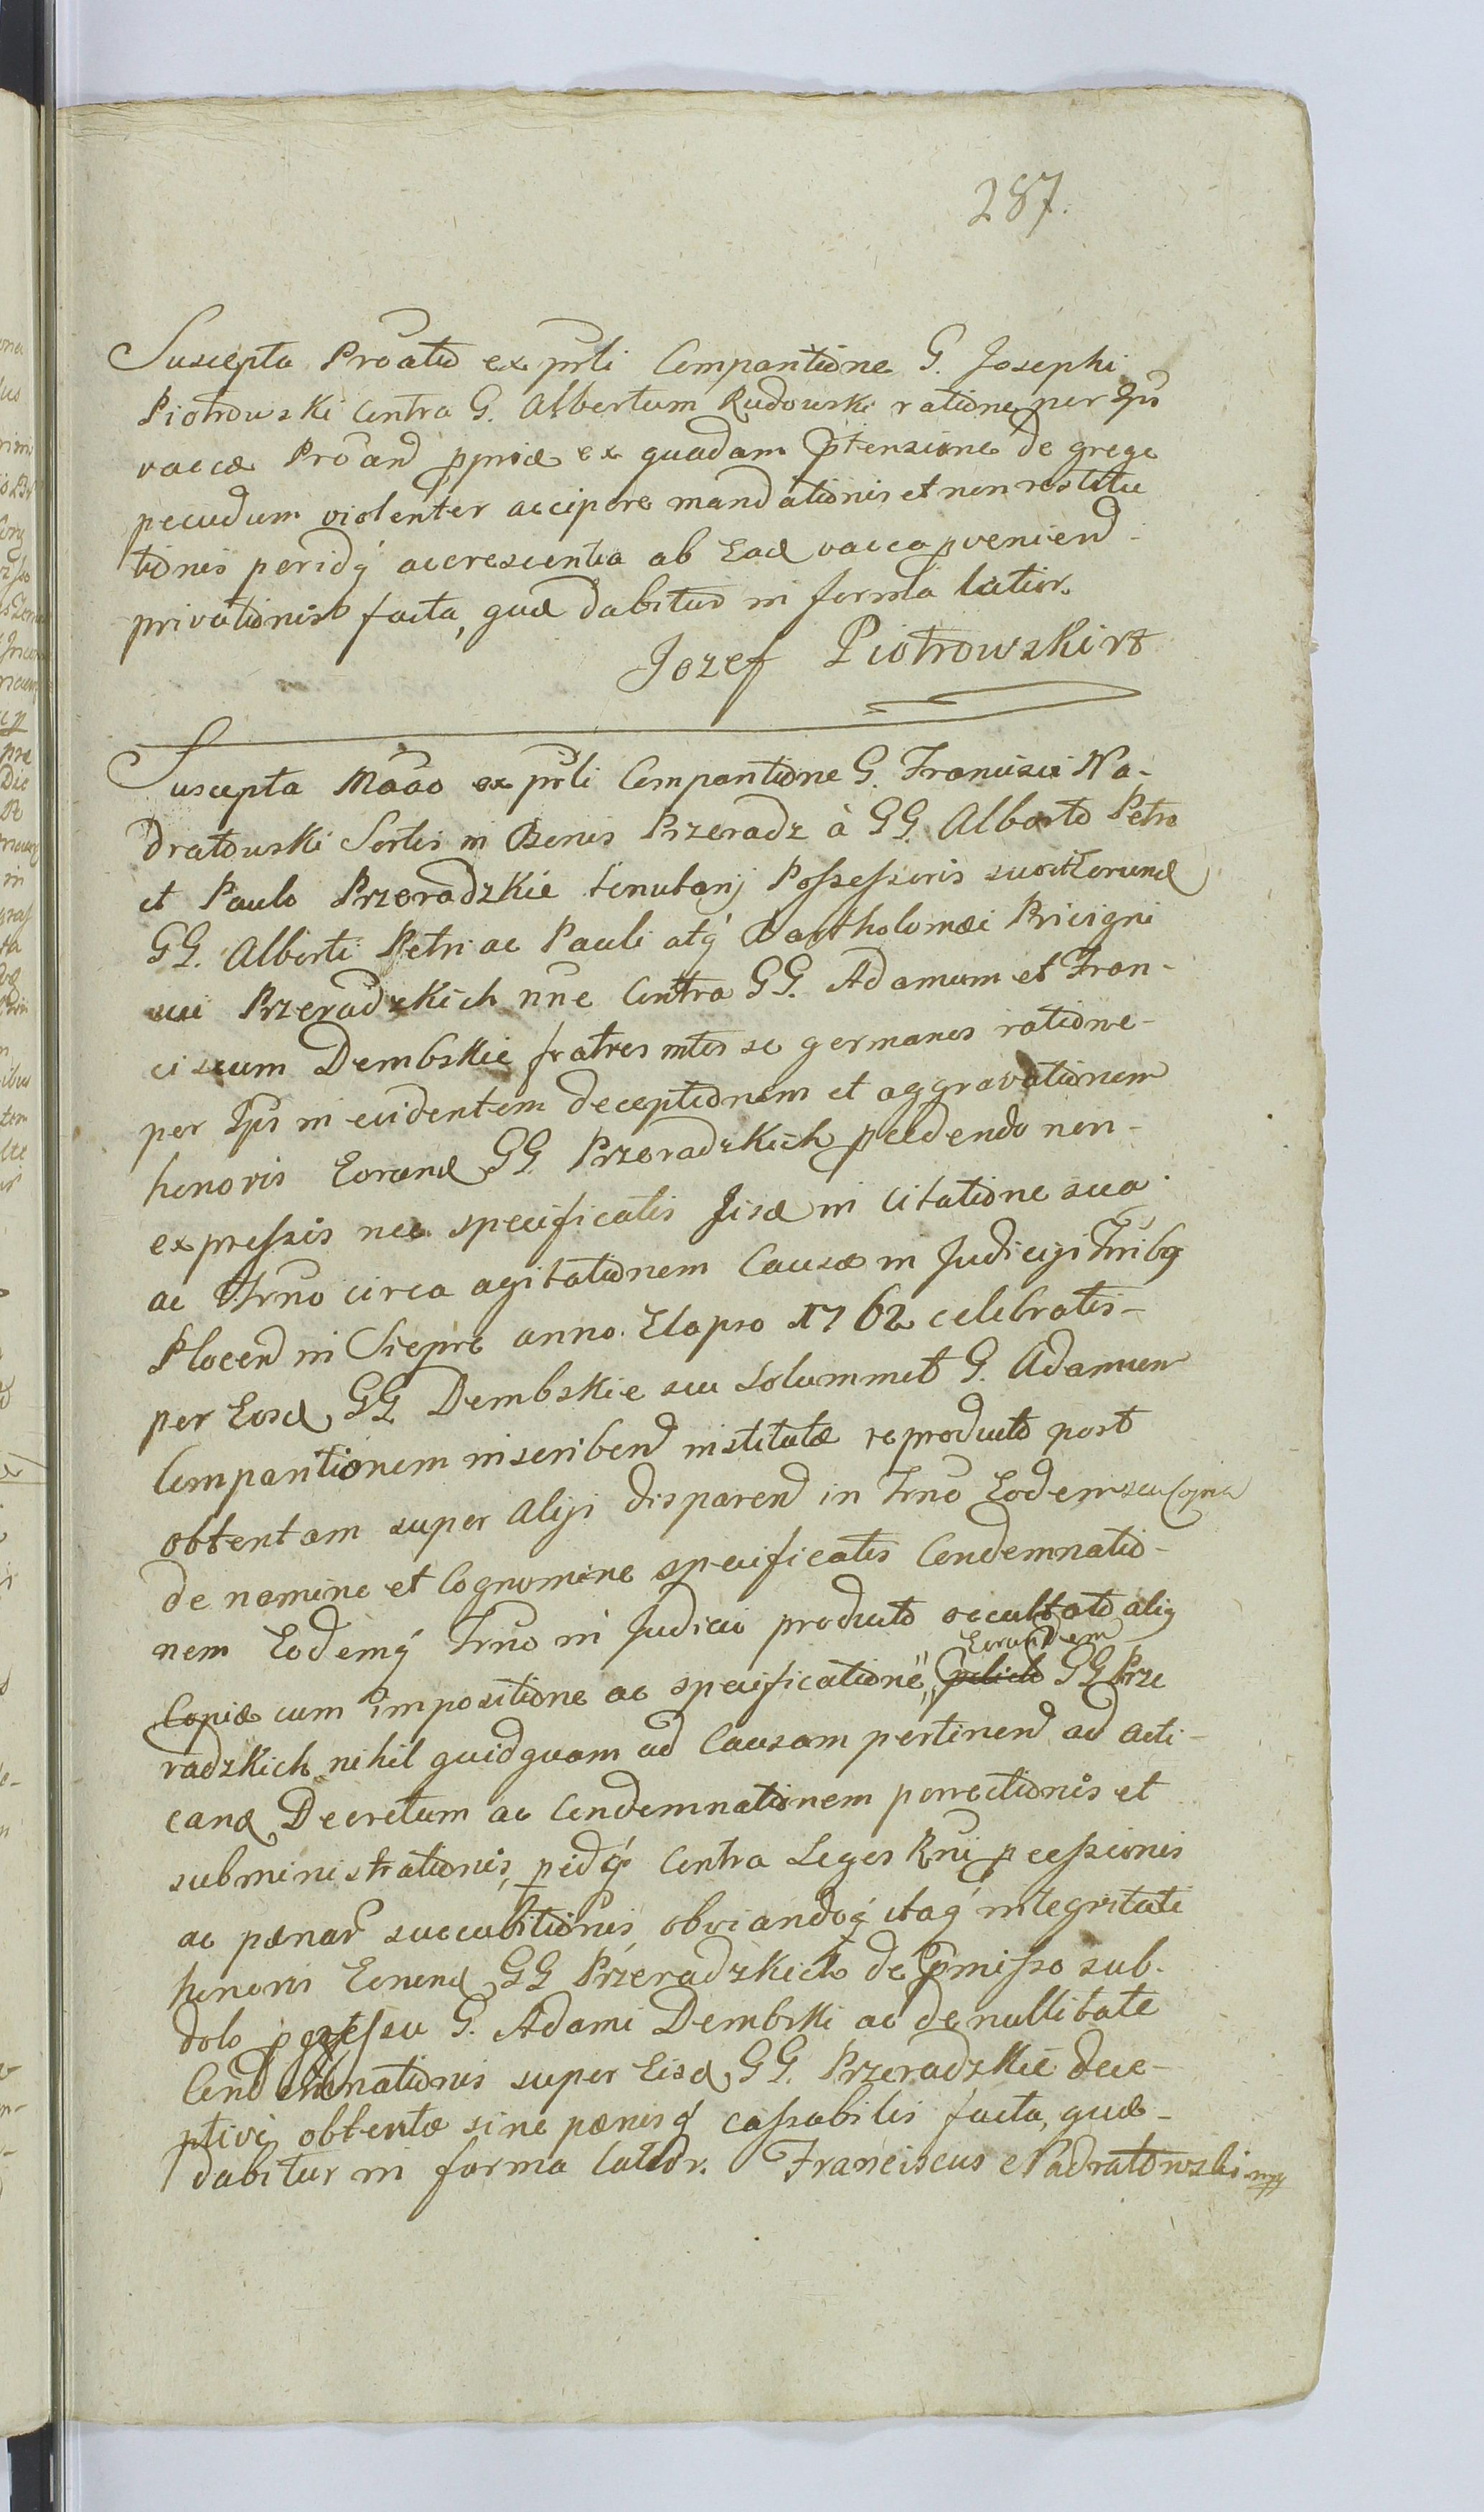 287.
Suscepta Proãtio ex prli Comparitione G. Josephi
Piotrowski contra G. Albertum Rudowski ratione per Ipũ
vaccæ Proãnd ppriæ ex quadam ptensione de grege
pecudum violenter accipere mandationis et non restitu
tionis peridq́ accrescentia ab Ead vacca pveniend
privationis facta, quæ dabitur in forma latior.
Jozef Piotrowski
Suscepta Mãão ex prli Comparitione G. Francisci Na-
dratowski Sortis in Bonis Przeradz à GG. Alberto Petro
et Paulo Przeradzkie tenutarij Possessoris suoitt Eorund
GG. Alberti Petri ac Pauli atq́ Bartholomæi Privigni
sui Przeradzkich nne Contra GG. Adamum et Fran-
ciscum Dembskie fratres inter se germanos ratione-
per Ipõs in evidentem deceptionem et aggravationem
honoris Eorund GG. Przeradzkich pcedendo non-
expressis nec specificatis Jisd in Citatione sua
ac Trno circa agitationem Causæ in Judicijs Tribq
Plocen in Sierpc anno Elapso 1762 celebratis-
per Eosd GG Dembskie seu solummet G. Adamum
Comparitionem inscribend institutæ reproducto post
obtentam super alijs disparend in Trno Eodem seu Copia
de nomine et Cognomine specificatis Condemnatio-
nem Eodemq́ Trno in Judicio producto occultato aliq
Copiæ cum impositione ac specificatione, Eorundem GG Prze
radzkich nihil quidquam ad Causam pertinend ad acti-
cand Decretum ac Condemnationem porrectionis et
subministrationis, pidq́ Contra Leges Rni pcessionis
ac pænar succubitionis, obviandoq́ itaq́ integritati
honoris Eorund GG Przeradzkich de pmisso sub-
dolo pcessu G. Adami Dembski ac de nullitate
Condemnationis super Eisd GG. Przeradzkie dece-
ptive obtentæ sine pænisq́ cassabilis facta, quæ-
dabitur in forma latior. Franciscus Nadratowski mp